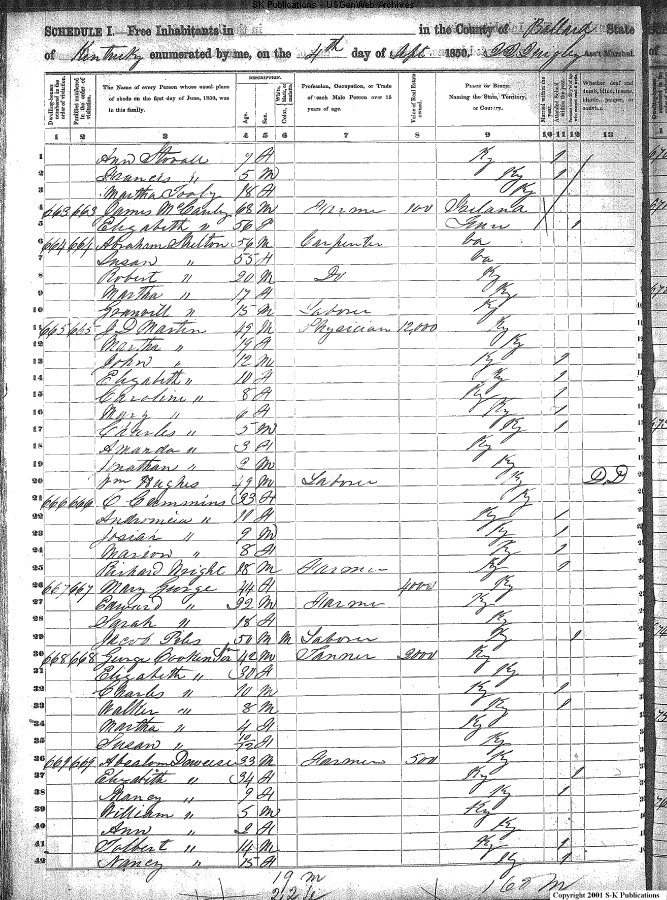 S-K Publications - USGenWeb Archives
SCHEDULE I. Free Inhabitants in in the County of Ballard State
of Kentucky enumerated by me, on the 4th day of Sept 1850. Ass't Marshal.
Dwelling-houses numbered in the order of visitation. Families numbered in the order of visitation. The Name of every Person whose usual place of abode on the first day of June, 1850, was in this family. DESCRIPTION. Age. Sex. Color, White, black, or mulatto. Profession, Occupation, or Trade of each Male Person over 15 years of age. Value of Real Estate owned. PLACE OF BIRTH. Naming the State, Territory, or Country. Married within the year. Attended School within the year. Whether deaf and dumb, blind, insane, idiotic, pauper, or convict.
1 2 3 4 5 6 7 8 9 10 11 12 13
1 Ann Stovall 7 Ky 1
2 Francis " 5 M Ky 1
3 Martha 18 Ky
4 663 663 James 68 M Farmer 100 Ireland
5 Elizabeth " 56 F Tenn 1
6 664 664 Abraham Shelton 56 M Carpenter Va
7 Susan " 55 Va
8 Robert " 20 M Do Ky
9 Martha " 17 Ky
10 Granvill " 15 M Laborer Ky
11 665 665 J D Martin 49 M Physician 12,000 Ky
12 Martha " 19 Ky
13 John " 12 M Ky 1
14 Elizabeth " 10 Ky 1
15 Caroline " 8 Ky 1
16 Mary " 6 Ky 1
17 Charles " 5 M Ky 1
18 Amanda " 3 Ky
19 Jonathan " 2 M Ky
20 Wm Hughs 49 M Laborer Ky D D
21 666 666 C Cummins 33 Ky
22 " 11 Ky 1
23 Josiah " 9 M Ky 1
24 Marion " 8 Ky 1
25 Richard Wright 18 M Farmer Ky 1
26 667 667 Mary George 44 4000 Ky
27 Edward " 22 M Farmer Ky
28 Sarah " 18 Ky
29 Jacob 50 M M Laborer Ky 1
30 668 668 George 42 M Tanner 2000 Ky
31 Elizabeth " 30 Ky
32 Charles " 10 M Ky 1
33 " 8 M Ky 1
34 Martha " 4 Ky
35 Susan " 10/12 Ky
36 669 669 Absalom 33 M Farmer 500 Ky
37 Elizabeth " 34 Ky 1
38 Nancy " 9 Ky 1
39 William " 5 M Ky
40 Ann " 2 Ky
41 Tolbert " 14 M Ky 1
42 Nancy " 15 Ky 1
19 M
Copyright 2001 S-K Publications